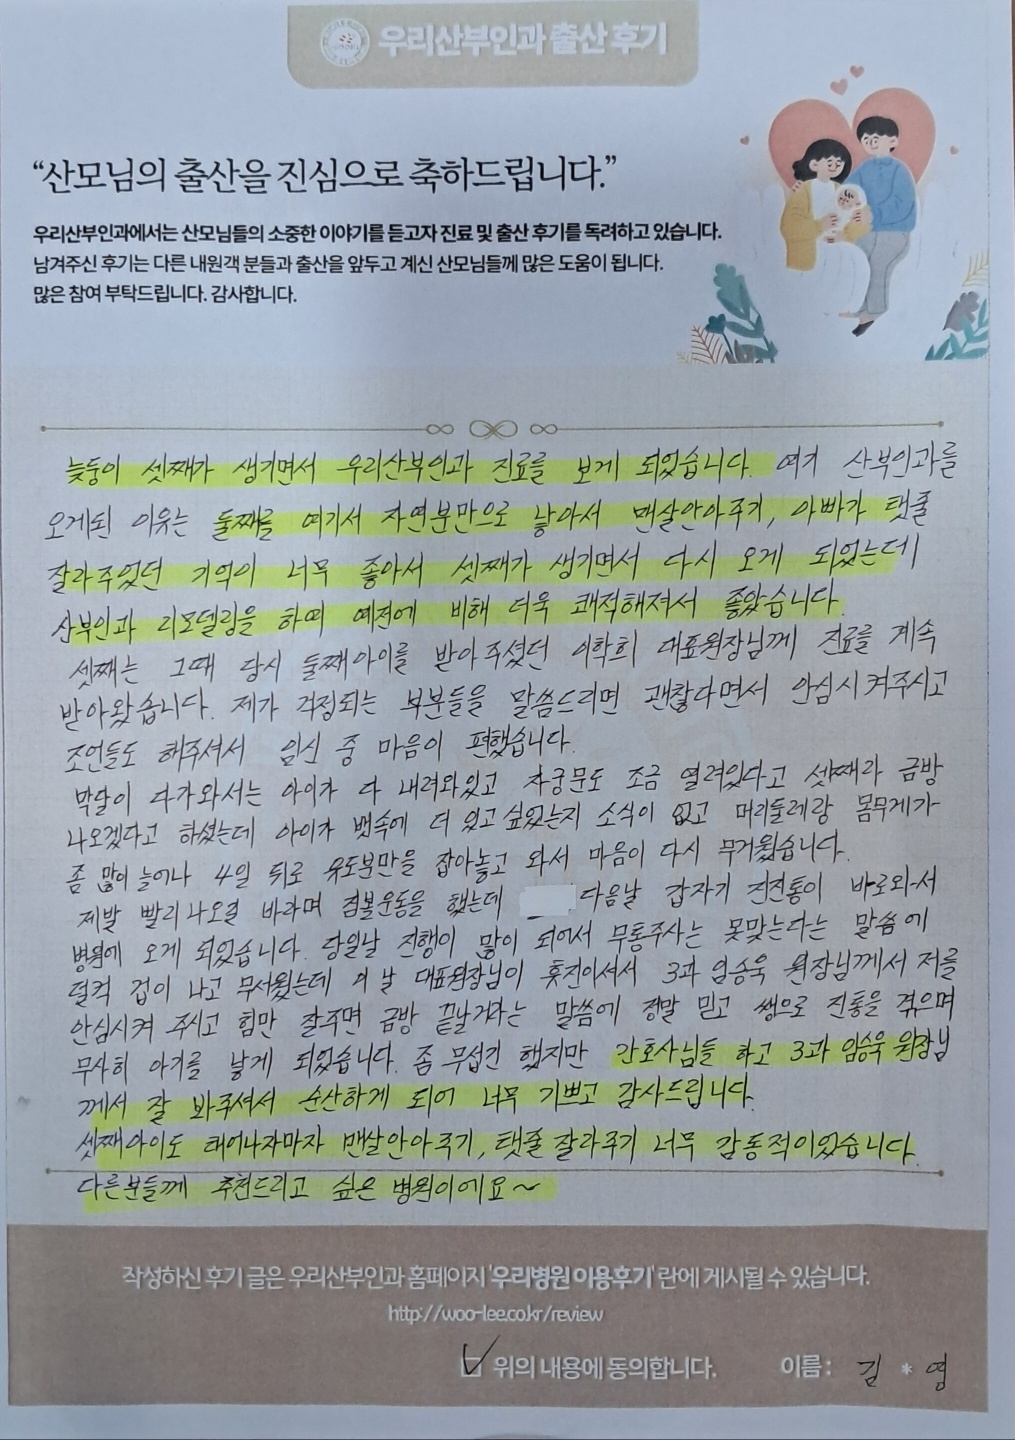 우리산부인과 출산 후기
“산모님의 출산을 진심으로 축하드립니다.”
우리산부인과에서는 산모님들의 소중한 이야기를 듣고자 진료 및 출산 후기를 독려하고 있습니다.
남겨주신 후기는 다른 내원객 분들과 출산을 앞두고 계신 산모님들께 많은 도움이 됩니다.
많은 참여 부탁드립니다. 감사합니다.
늦둥이 셋째가 생기면서 우리산부인과 진료를 보게 되었습니다. 여기 산부인과를
오게된 이유는 둘째를 여기서 자연분만으로 낳아서 맨살안아주기, 아빠가 탯줄
잘라주었던 기억이 너무 좋아서 셋째가 생기면서 다시 오게 되었는데
산부인과 리모델링을 하여 예전에 비해 더욱 쾌적해져서 좋았습니다.
셋째는 그때 당시 둘째아이를 받아주셨던 이학희 대표원장님께 진료를 계속
받아왔습니다. 제가 걱정되는 부분들을 말씀드리면 괜찮다면서 안심시켜주시고
조언들도 해주셔서 임신 중 마음이 편했습니다.
막달이 다가와서는 아이가 다 내려와있고 자궁문도 조금 열려있다고 셋째라 금방
나오겠다고 하셨는데 아이가 뱃속에 더 있고 싶었는지 소식이 없고 머리둘레랑 몸무게가
좀 많이 늘어나 4일 뒤로 유도분만을 잡아놓고 와서 마음이 다시 무거웠습니다.
제발 빨리 나오길 바라며 짐볼운동을 했는데 다음날 갑자기 진진통이 바로와서
병원에 오게 되었습니다. 당일날 진행이 많이 되어서 무통주사는 못맞는다는 말씀에
덜컥 겁이 나고 무서웠는데 이 날 대표원장님이 휴진이셔서 3과 임승욱 원장님께서 저를
안심시켜 주시고 힘만 잘주면 금방 끝날거라는 말씀에 정말 믿고 쌩으로 진통을 겪으며
무사히 아기를 낳게 되었습니다. 좀 무섭긴 했지만 간호사님들 하고 3과 임승욱 원장님
께서 잘 봐주셔서 순산하게 되어 너무 기쁘고 감사드립니다.
셋째아이도 태어나자마자 맨살안아주기, 탯줄 잘라주기 너무 감동적이었습니다.
다른분들께 추천드리고 싶은 병원이에요~
작성하신 후기 글은 우리산부인과 홈페이지 '우리병원 이용후기' 란에 게시될 수 있습니다.
http://woo-lee.co.kr/review
위의 내용에 동의합니다. 이름 : 김 * 영